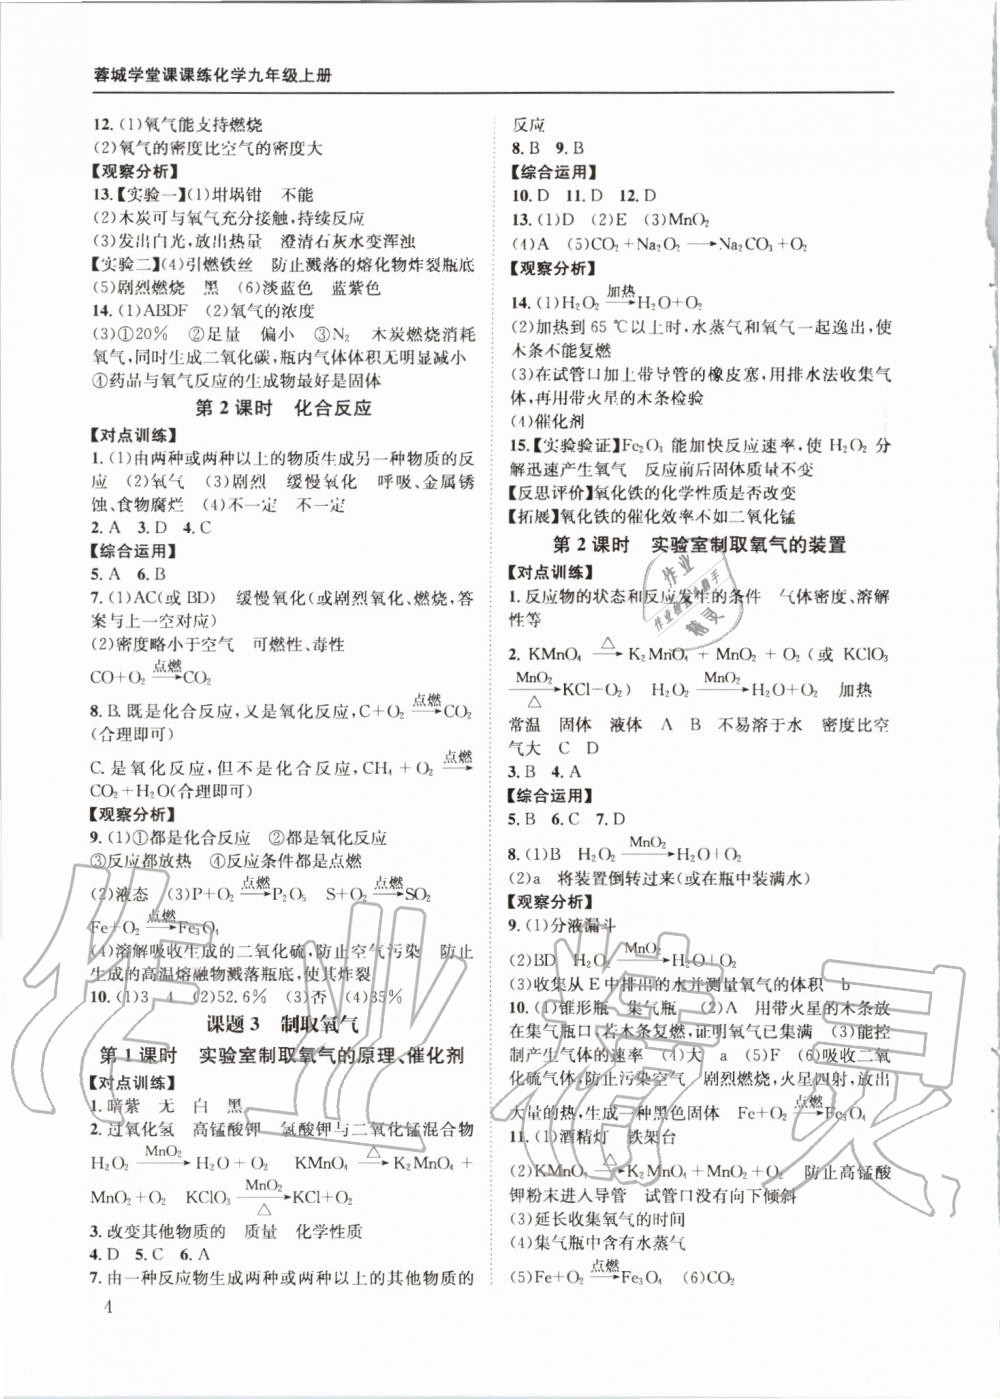 蓉城学堂课课练化学九年级上册
12. (1)氧气能支持燃烧
(2)氧气的密度比空气的密度大
【观察分析】
13.【实验一】(1)坩埚钳　不能
(2)木炭可与氧气充分接触,持续反应
(3)发出白光,放出热量　澄清石灰水变浑浊
【实验二】(4)引燃铁丝　防止溅落的熔化物炸裂瓶底
(5)剧烈燃烧　黑　(6)淡蓝色　蓝紫色
14. (1)ABDF　(2)氧气的浓度
(3)①20%　②足量　偏小　③N₂　木炭燃烧消耗
氧气,同时生成二氧化碳,瓶内气体体积无明显减小
④药品与氧气反应的生成物最好是固体
第 2 课时　化合反应
【对点训练】
1. (1)由两种或两种以上的物质生成另一种物质的反
应　(2)氧气　(3)剧烈　缓慢氧化　呼吸、金属锈
蚀、食物腐烂　(4)不一定　不一定
2. A　3. D　4. C
【综合运用】
5. A　6. B
7. (1)AC(或 BD)　缓慢氧化(或剧烈氧化、燃烧,答
案与上一空对应)
(2)密度略小于空气　可燃性、毒性
CO+O₂ —点燃→ CO₂
8. B. 既是化合反应,又是氧化反应,C+O₂ —点燃→ CO₂
(合理即可)
C. 是氧化反应,但不是化合反应,CH₄+O₂ —点燃→
CO₂+H₂O(合理即可)
【观察分析】
9. (1)①都是化合反应　②都是氧化反应
③反应都放热　④反应条件都是点燃
(2)液态　(3)P+O₂ —点燃→ P₂O₅　S+O₂ —点燃→ SO₂
Fe+O₂ —点燃→ Fe₃O₄
(4)溶解吸收生成的二氧化硫,防止空气污染　防止
生成的高温熔融物溅落瓶底,使其炸裂
10. (1)3　4　(2)52.6%　(3)否　(4)35%
课题 3　制取氧气
第 1 课时　实验室制取氧气的原理、催化剂
【对点训练】
1. 暗紫　无　白　黑
2. 过氧化氢　高锰酸钾　氯酸钾与二氧化锰混合物
H₂O₂ —MnO₂→ H₂O + O₂　KMnO₄ —△→ K₂MnO₄ +
MnO₂ + O₂　KClO₃ —MnO₂/△→ KCl+O₂
3. 改变其他物质的　质量　化学性质
4. D　5. C　6. A
7. 由一种反应物生成两种或两种以上的其他物质的
4
反应
8. B　9. B
【综合运用】
10. D　11. D　12. D
13. (1)D　(2)E　(3)MnO₂
(4)A　(5)CO₂+Na₂O₂ —→ Na₂CO₃+O₂
【观察分析】
14. (1)H₂O₂ —加热→ H₂O+O₂
(2)加热到 65 ℃以上时,水蒸气和氧气一起逸出,使
木条不能复燃
(3)在试管口加上带导管的橡皮塞,用排水法收集气
体,再用带火星的木条检验
(4)催化剂
15.【实验验证】Fe₂O₃ 能加快反应速率,使 H₂O₂ 分
解迅速产生氧气　反应前后固体质量不变
【反思评价】氧化铁的化学性质是否改变
【拓展】氧化铁的催化效率不如二氧化锰
第 2 课时　实验室制取氧气的装置
【对点训练】
1. 反应物的状态和反应发生的条件　气体密度、溶解
性等
2. KMnO₄ —△→ K₂MnO₄ + MnO₂ + O₂ (或 KClO₃
—MnO₂/△→ KCl-O₂)　H₂O₂ —MnO₂→ H₂O+O₂　加热
常温　固体　液体　A　B　不易溶于水　密度比空
气大　C　D
3. B　4. A
【综合运用】
5. B　6. C　7. D
8. (1)B　H₂O₂ —MnO₂→ H₂O+O₂
(2)a　将装置倒转过来(或在瓶中装满水)
【观察分析】
9. (1)分液漏斗
(2)BD　H₂O₂ —MnO₂→ H₂O+O₂
(3)收集从 E 中排出的水并测量氧气的体积　b
10. (1)锥形瓶　集气瓶　(2)A　用带火星的木条放
在集气瓶口,若木条复燃,证明氧气已集满　(3)能控
制产生气体的速率　(4)大　a　(5)F　(6)吸收二氧
化硫气体,防止污染空气　剧烈燃烧,火星四射,放出
大量的热,生成一种黑色固体　Fe+O₂ —点燃→ Fe₃O₄
11. (1)酒精灯　铁架台
(2)KMnO₄ —△→ K₂MnO₄+MnO₂+O₂　防止高锰酸
钾粉末进入导管　试管口没有向下倾斜
(3)延长收集氧气的时间
(4)集气瓶中含有水蒸气
(5)Fe+O₂ —点燃→ Fe₃O₄　(6)CO₂
作业精灵
作业
作业检查小助手
精灵